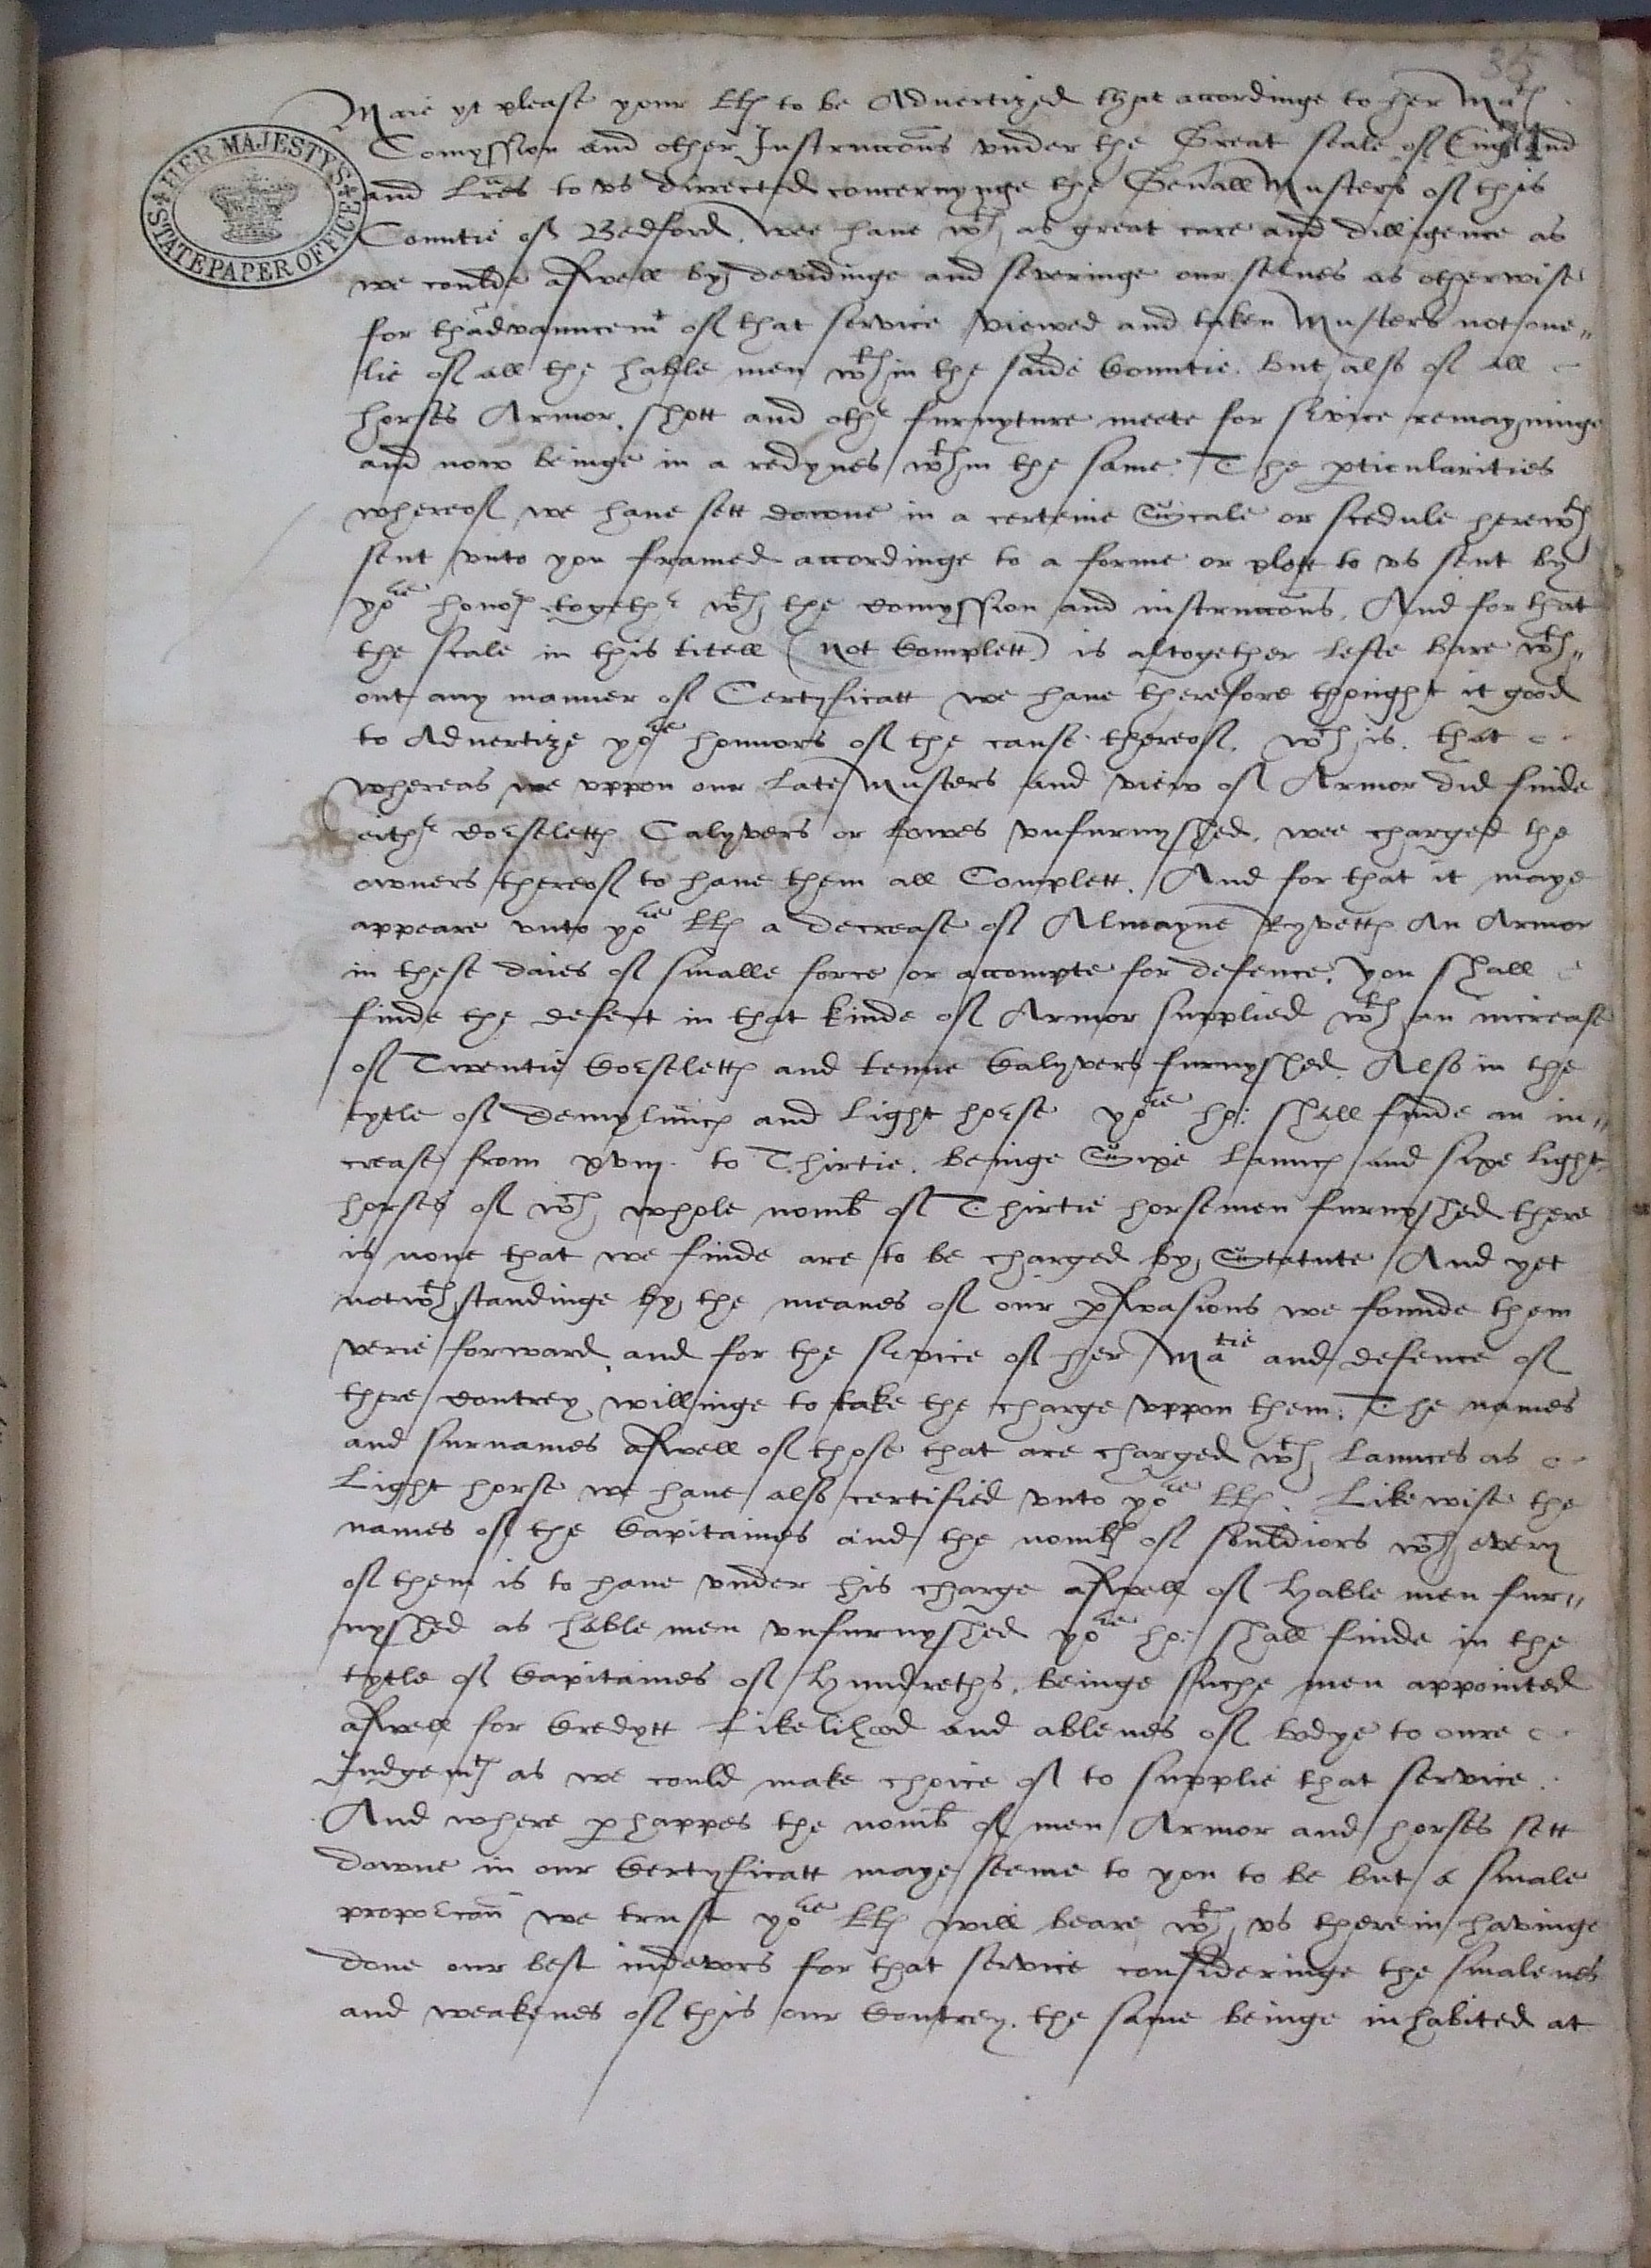 35
HER MAJESTY'S
STATE PAPER OFFICE
Maie yt please your LLs to be Advertized that accordinge to her Mats
Comyssion and other Instruccons vnder the Great seale of England
and Lres to vs directed concernynge the Genall Musters of this
Countie of Bedford. Wee haue wth as great care and dilligence as
we coulde aswell by devidinge and severinge our selues as otherwise
for thadvauncemt of that service viewed and taken Musters not one„
lie of all the hable men wthin the saide Countie. but also of all
horses Armor, shott and othr furnyture meete for svice remayninge
and now beinge in a redynes wthin the same. The pticularities
whereof we haue sett downe in a certeine Scale or scedule herewth
sent vnto you framed accordinge to a forme or plott to vs sent by
yore honors togethr wth the Comyssion and instruccons. And for that
the scale in this titell (not Complett) is altogether lefte bare wth„
out any manner of Certyficatt we haue therefore thought it good
to Advertize yore honnors of the cause thereof, wch is, that
whereas we vppon our late Musters and view of Armor did finde
eithr Corseletts Calyvers or bowes vnfurnyshed, wee charged the
owners thereof to haue them all Complett. And for that it maye
appeare vnto yore LLs a decrease of Almayne Ryvetts An Armor
in these daies of smalle force or accompte for defence, you shall
finde the defect in that kinde of Armor supplied wth an increase
of Twentie Corseletts and tenne Calyvers furnyshed. Also in the
tytle of Demylaunces and light horse yore ho: shall finde an in„
crease from xviij to Thirtie. beinge Sixe Launces and sixe light
horses of wch whole nomb of Thirtie horsemen furnyshed there
is none that we finde are to be charged by Statute And yet
notwthstandinge by the meanes of our pswasions we founde them
verie forward, and for the svice of her Matie and defence of
there Contrey willinge to take the charge vppon them. The names
and surnames aswell of those that are charged wth Launces as
Light horse we haue also certified vnto yore LLs. Likewise the
names of the Capitaines and the nombr of souldiors wch every
of them is to haue vnder his charge aswell of hable men fur„
nyshed as hable men vnfurnyshed yore ho: shall finde in the
tytle of Capitaines of Hundreths, beinge suche men appointed
aswell for Credytt Likelihood and ablenes of bodye to oure
Judgemts as we could make choice of to supplie that service.
And where phappes the nomb of men Armor and horses sett
downe in our Certyficatt maye seeme to you to be but a smale
proporcon we trust yore LLs will beare wth vs therein havinge
done our best indevors for that service consideringe the smalenes
and weaknes of this our Contrey. the same beinge inhabited at